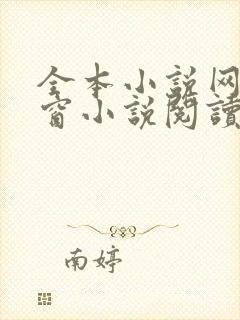 全本小说网
窗小说閱讀
南婷